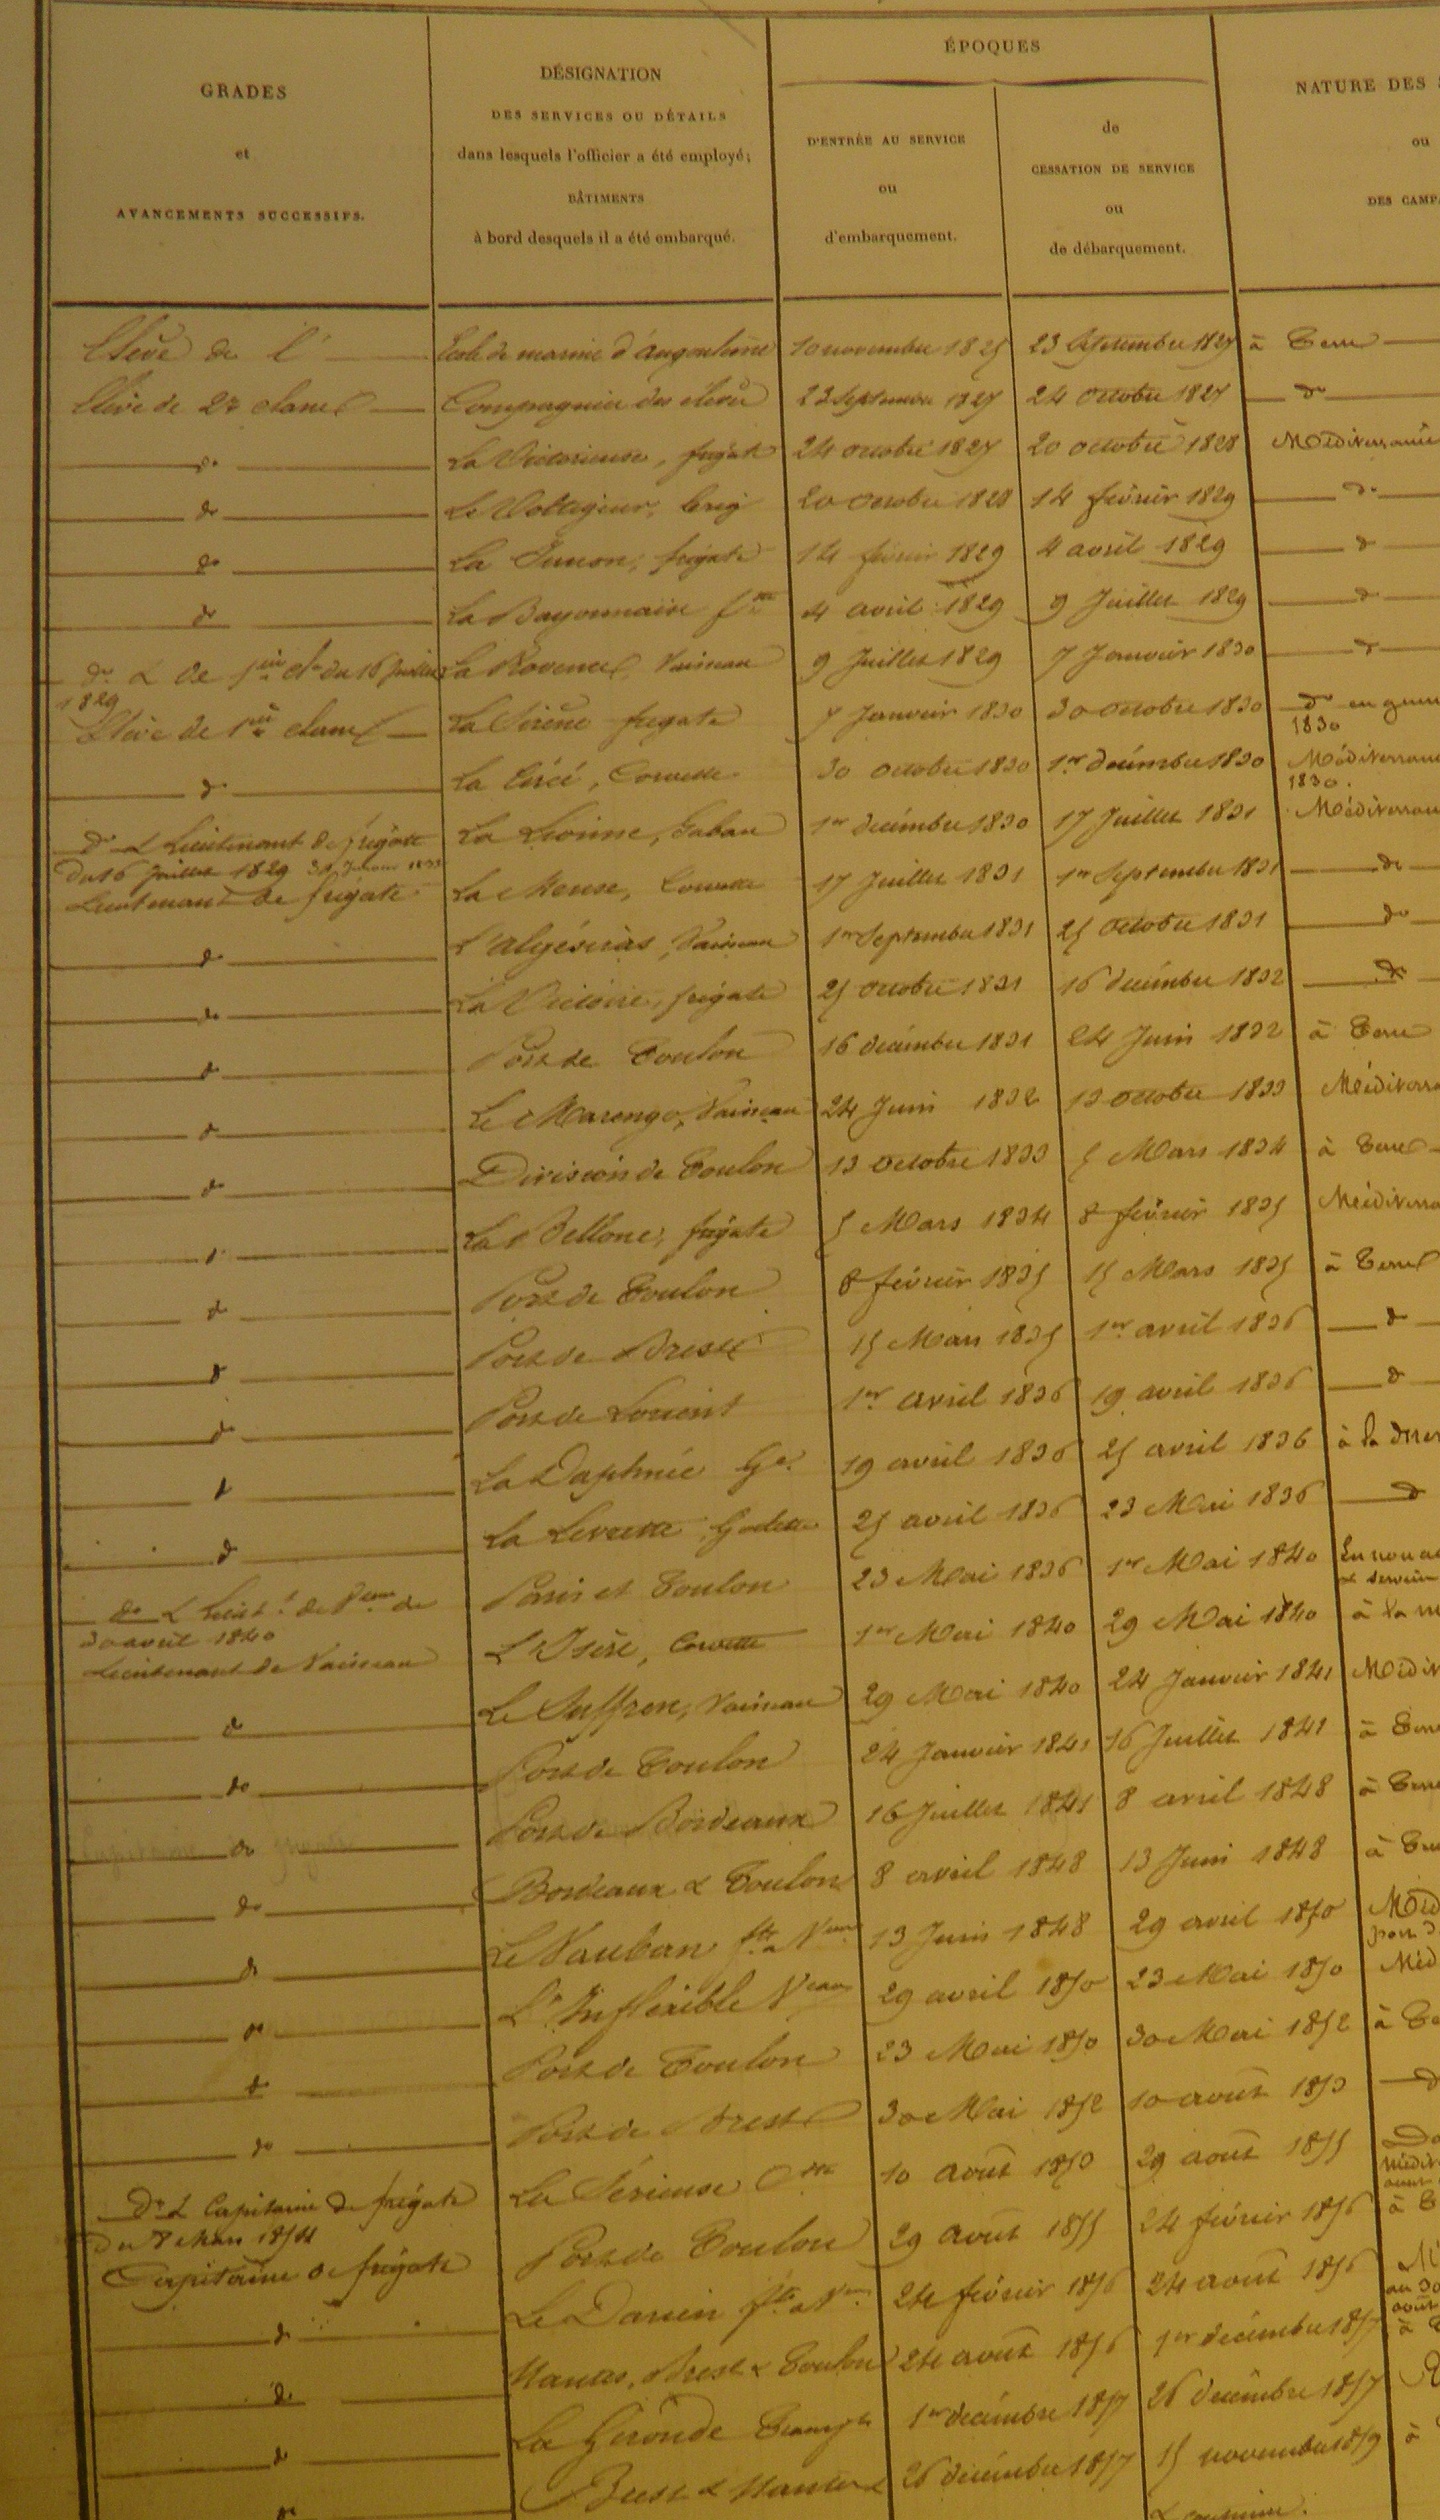 GRADES
et
AVANCEMENTS SUCCESSIFS.
DÉSIGNATION
DES SERVICES OU DÉTAILS
dans lesquels l'officier a été employé;
BÂTIMENTS
à bord desquels il a été embarqué.
ÉPOQUES
D'ENTRÉE AU SERVICE
ou
d'embarquement.
de
CESSATION DE SERVICE
ou
de débarquement.
NATURE DES
ou
DES CAMP
Elève de l' Ecole de marine d'angoulême 10 novembre 1825 23 Septembre 1827 à Terre
Elève de 2e classe Compagnie des élèves 23 Septembre 1827 24 octobre 1827 do
do La Victorieuse, frégate 24 octobre 1827 20 octobre 1828 Méditerranée
do Le Voltigeur, brig 20 octobre 1828 14 février 1829 do
do La Junon, frégate 14 février 1829 4 avril 1829 do
do La Bayonnaise 4 avril 1829 9 Juillet 1829 do
do & de 1ère cl. du 16 Juillet 1829 La Provence, Vaisseau 9 Juillet 1829 7 Janvier 1830 do
Elève de 1ère classe La Sirène frégate 7 Janvier 1830 30 octobre 1830 do en guerre 1830
do La Circé, Corvette 30 octobre 1830 1er décembre 1830 Méditerranée 1830.
do & Lieutenant de frégate La Lionne, Gabare 1er décembre 1830 17 Juillet 1831 Méditerranée
du 16 Juillet 1829
Lieutenant de frégate La Meuse, Corvette 17 Juillet 1831 1er Septembre 1831 do
do L'algésiras, Vaisseau 1er Septembre 1831 25 octobre 1831 do
do La Victoire, frégate 25 octobre 1831 16 décembre 1832 do
do Port de Toulon 16 décembre 1831 24 Juin 1832 à Terre
do Le Marengo, Vaisseau 24 Juin 1832 13 octobre 1833 Méditerra
do Division de Toulon 13 octobre 1833 5 Mars 1834 à Terre
do La Bellone, frégate 5 Mars 1834 8 février 1835 Méditerra
do Port de Toulon 8 février 1835 15 Mars 1835 à Terre
do Port de Brest 15 Mars 1835 1er avril 1836 do
do Port de Lorient 1er avril 1836 19 avril 1836 do
do La Daphnée Ge. 19 avril 1836 25 avril 1836 à la mer
do La Levrette Goelette 25 avril 1836 23 Mai 1836 do
do & Lieut. de Veau de Paris et Toulon 23 Mai 1836 1er Mai 1840
30 avril 1840
Lieutenant de Vaisseau L'Isère, Corvette 1er Mai 1840 29 Mai 1840 à la m
do Le Suffren, Vaisseau 29 Mai 1840 24 Janvier 1841 Médit
do Port de Toulon 24 Janvier 1841 16 Juillet 1841 à Terre
do Port de Bordeaux 16 Juillet 1841 8 avril 1848 à Terre
do Bordeaux & Toulon 8 avril 1848 13 Juin 1848 à Ter
do Le Vauban fte à Veur 13 Juin 1848 29 avril 1850 Méd
do L'Inflexible Veau 29 avril 1850 23 Mai 1850 Méd
do Port de Toulon 23 Mai 1850 30 Mai 1852 à Te
do Port de Brest 30 Mai 1852 10 août 1853 do
do & Capitaine de frégate La Sérieuse Cette 10 août 1853 29 août 1855
du 7 Mars 1854
Capitaine de frégate Port de Toulon 29 août 1855 24 février 1856 à T
do Le Darien fte à Vr 24 février 1856 24 août 1856
do Nantes, Brest & Toulon 24 août 1856 1er décembre 1857 à T
do La Gironde Transpt 1er décembre 1857 26 décembre 1857
do Brest & Nantes 26 décembre 1857 15 novembre 1859 à